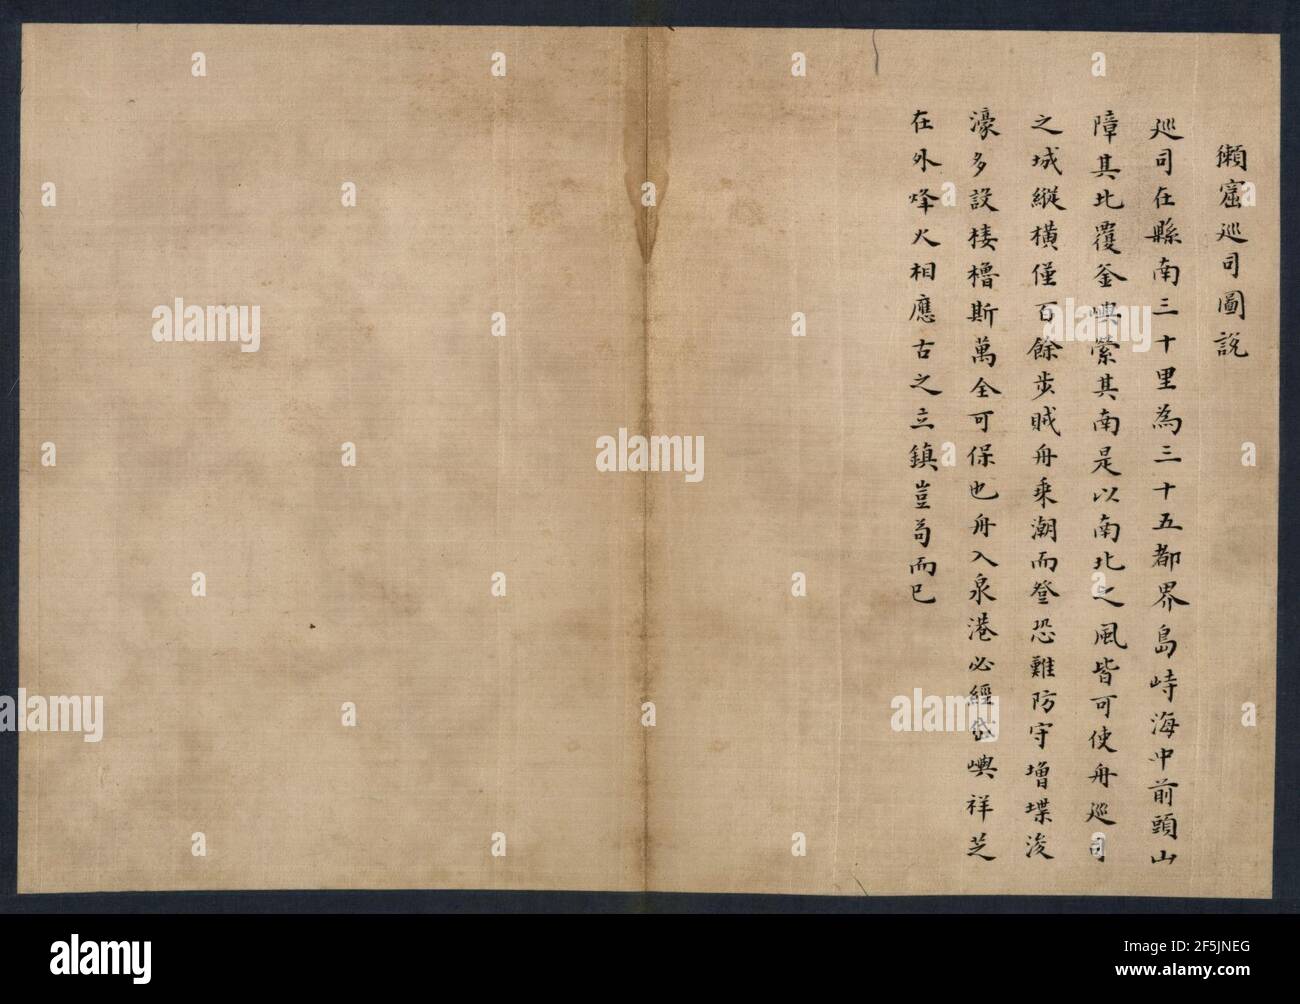 獺窟巡司圖說
巡司在縣南三十里為三十五都界島峙海中前頭山
障其北覆釜嶼縈其南是以南北之風皆可使舟巡司
之城縱橫僅百餘步賊舟乘潮而登恐難防守增堞浚
濠多設樓櫓斯萬全可保也舟入泉港必經岱嶼祥芝
在外烽火相應古之立鎮豈苟而已
alamy
Image ID: 2F5JNEG
www.alamy.com